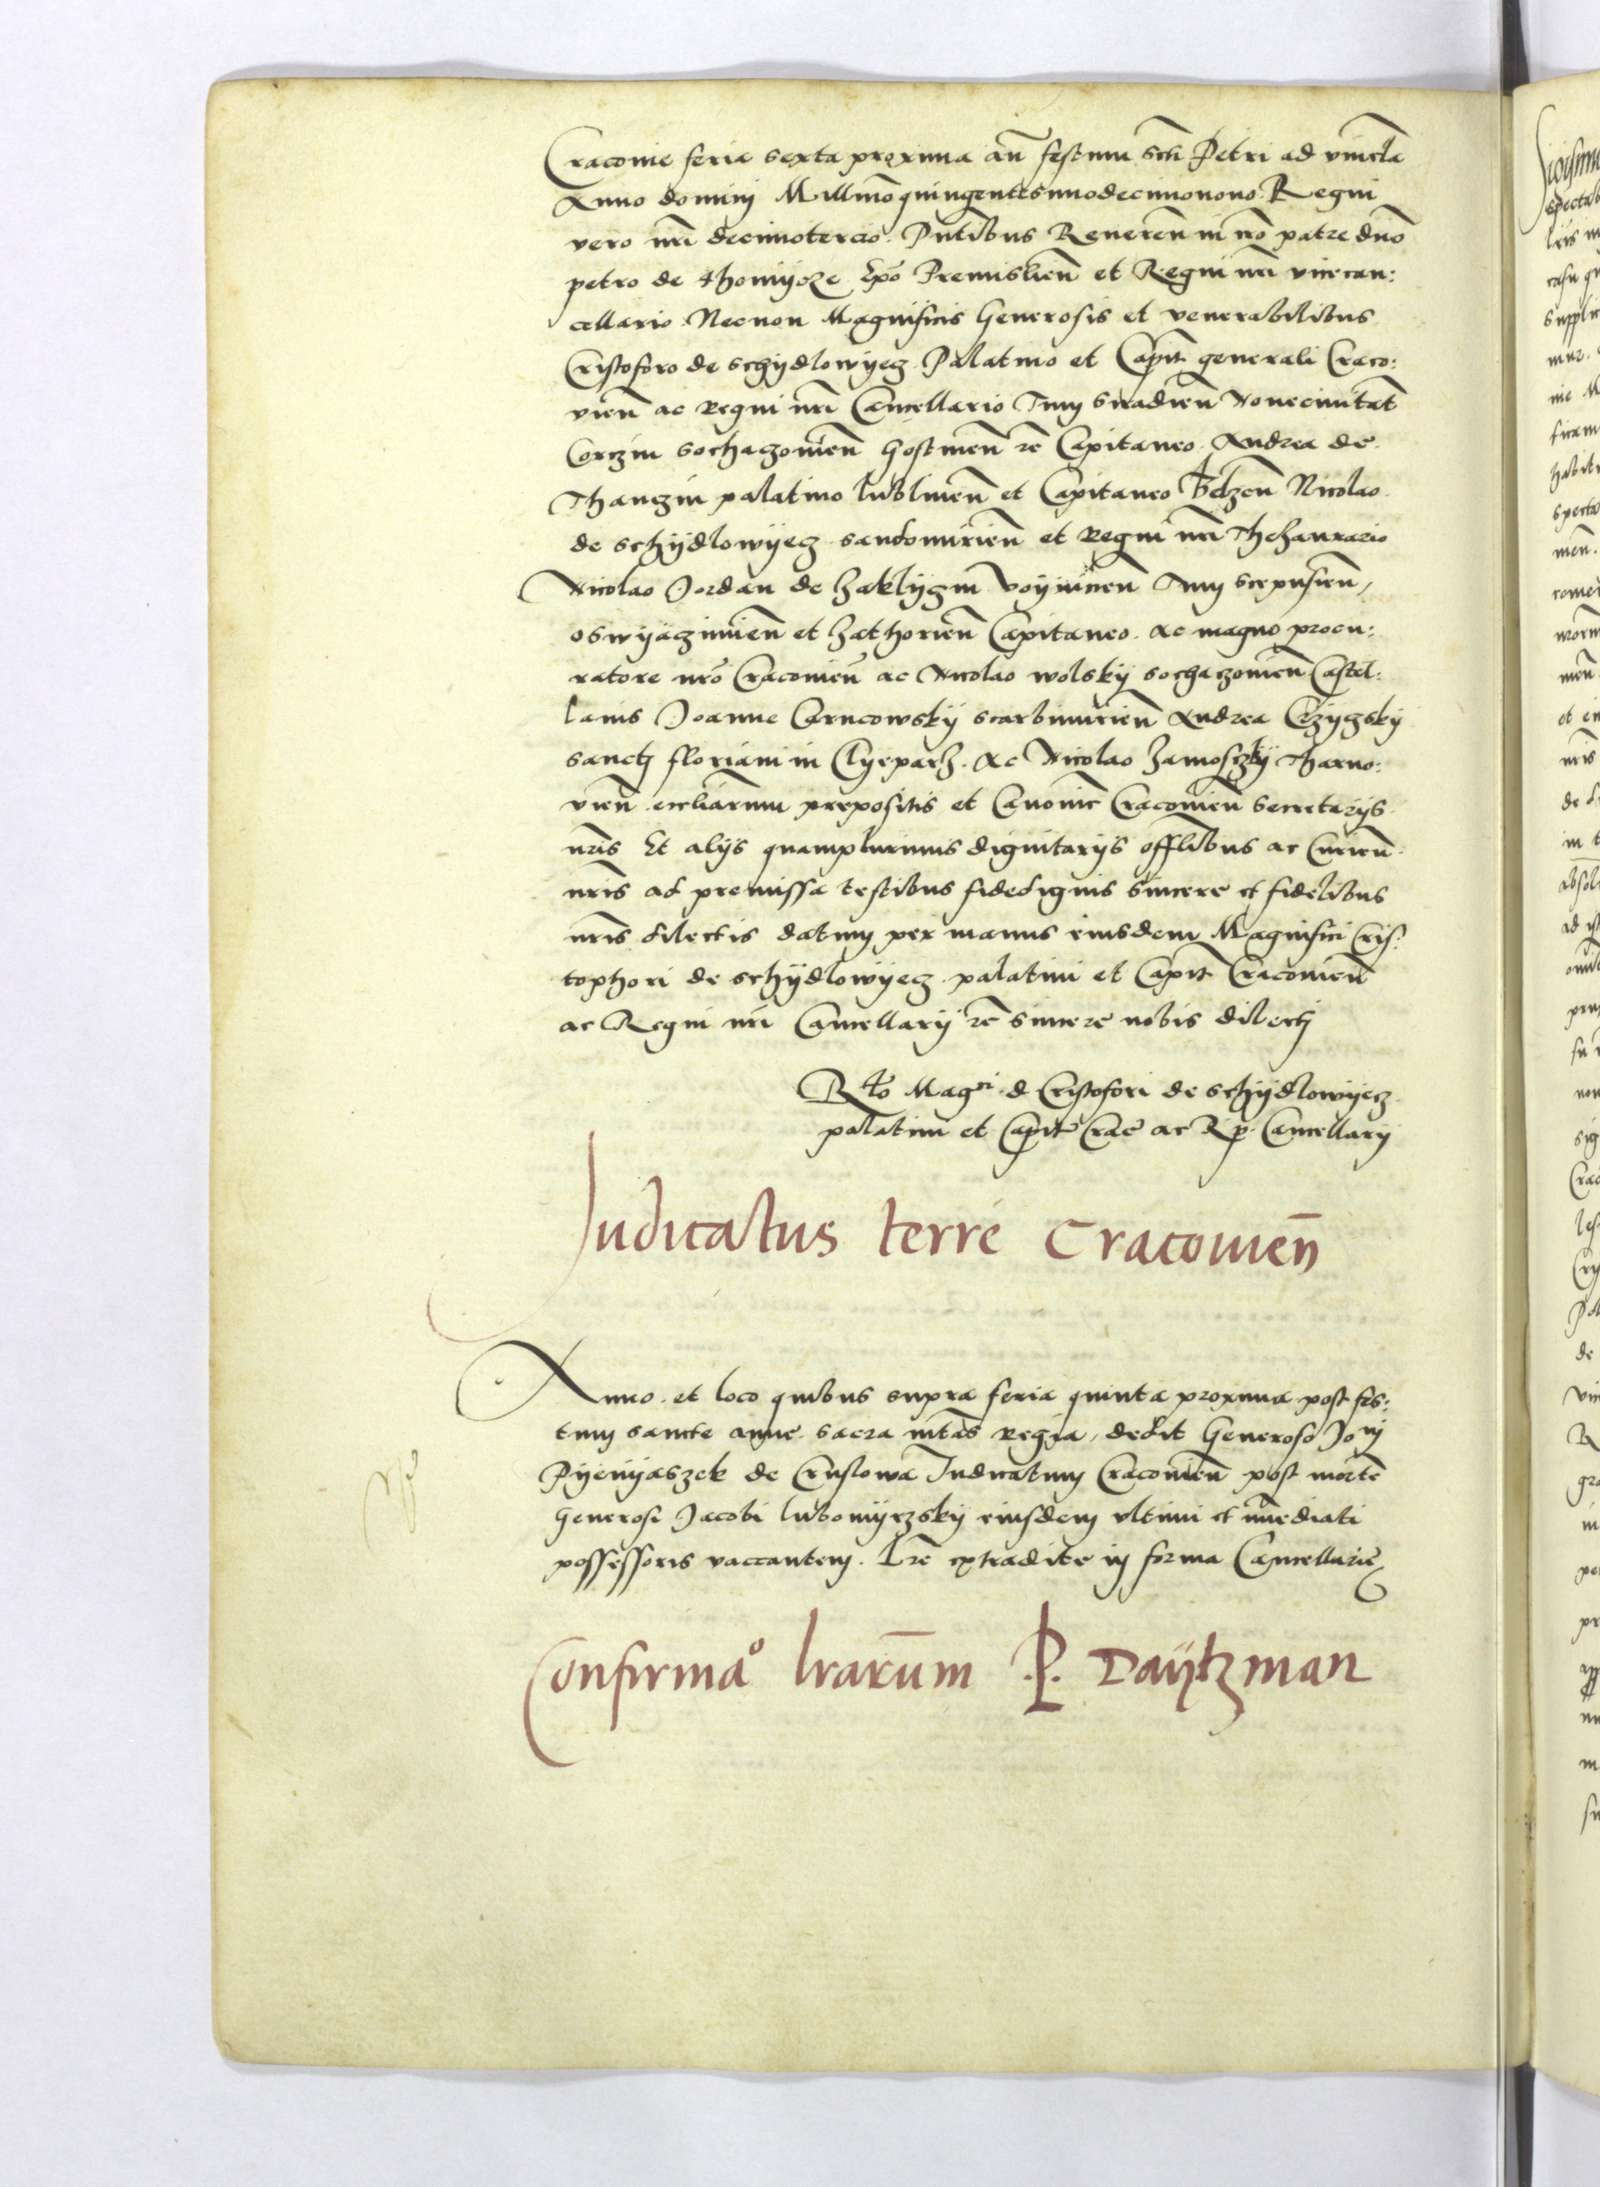 Cracovie feria sexta proxima an̄ festum scti Petri ad vincla
Anno domini Millmo quingentesimodecimonono. Regni
vero nri decimotercio. Pntibus Reveren in xpo patre dno
petro de thomijcze Epo Premislien et Regni nri vicecan:
cellario Necnon Magnificis Generosis et venerabilibus
Cristoforo de schijdlowijecz Palatino et Capit generali Craco:
vien ac Regni nri Cancellario Tum Siradien Novecivitat
Corczin sochaczovien Gostinen re Capitaneo. Andrea de
Thanczin palatino lublinen et Capitaneo Belzen Nicolao
de schijdlowijecz sandomirien et Regni nri Thezaurario
Nicolao Jordan de Zaklijczin Voijnicien Tum scepusien,
oswijaczimien et Zathorien Capitaneo. ac magno procu:
ratore nro Cracovien ac Nicolao wolskij sochaczovien Castel:
lanis Joanne Carncowskij scarbimirien Andrea Crzijczskij
sancti floriani in Clyeparz. Ac Nicolao Zamosczkij Tharno:
vien eccliarum prepositis et Canonic Cracovien secretarijs
nris Et alijs quampluribus dignitarijs offlibus ac Curien
nris ad premissa testibus fidedignis sincere et fidelibus
nris dilectis datum per manus eiusdem Magnifici Cris:
tophori de schijdlowijecz palatini et Capit Cracovien
ac Regni nri Cancellarij re sincere nobis dilecti
Rlo Magci d Cristofori de schijdlowijecz
palatini et Capit Crac ac R p Cancellarij
Judicatus terre Cracovien̄
Anno et loco quibus supra feria quinta proxima post fes:
tum sancte anne sacra mtas Regia, dedit Generoso Joni
Pijenijaszek de Cruslowa Judicatum Cracovien post mortē
Generosi Jacobi lubomijrzskij eiusdem ultimi et imediati
possessoris vaccantem. Lre extradite in forma Cancellarie
Confirmaº lrarum .P. Daijtzman